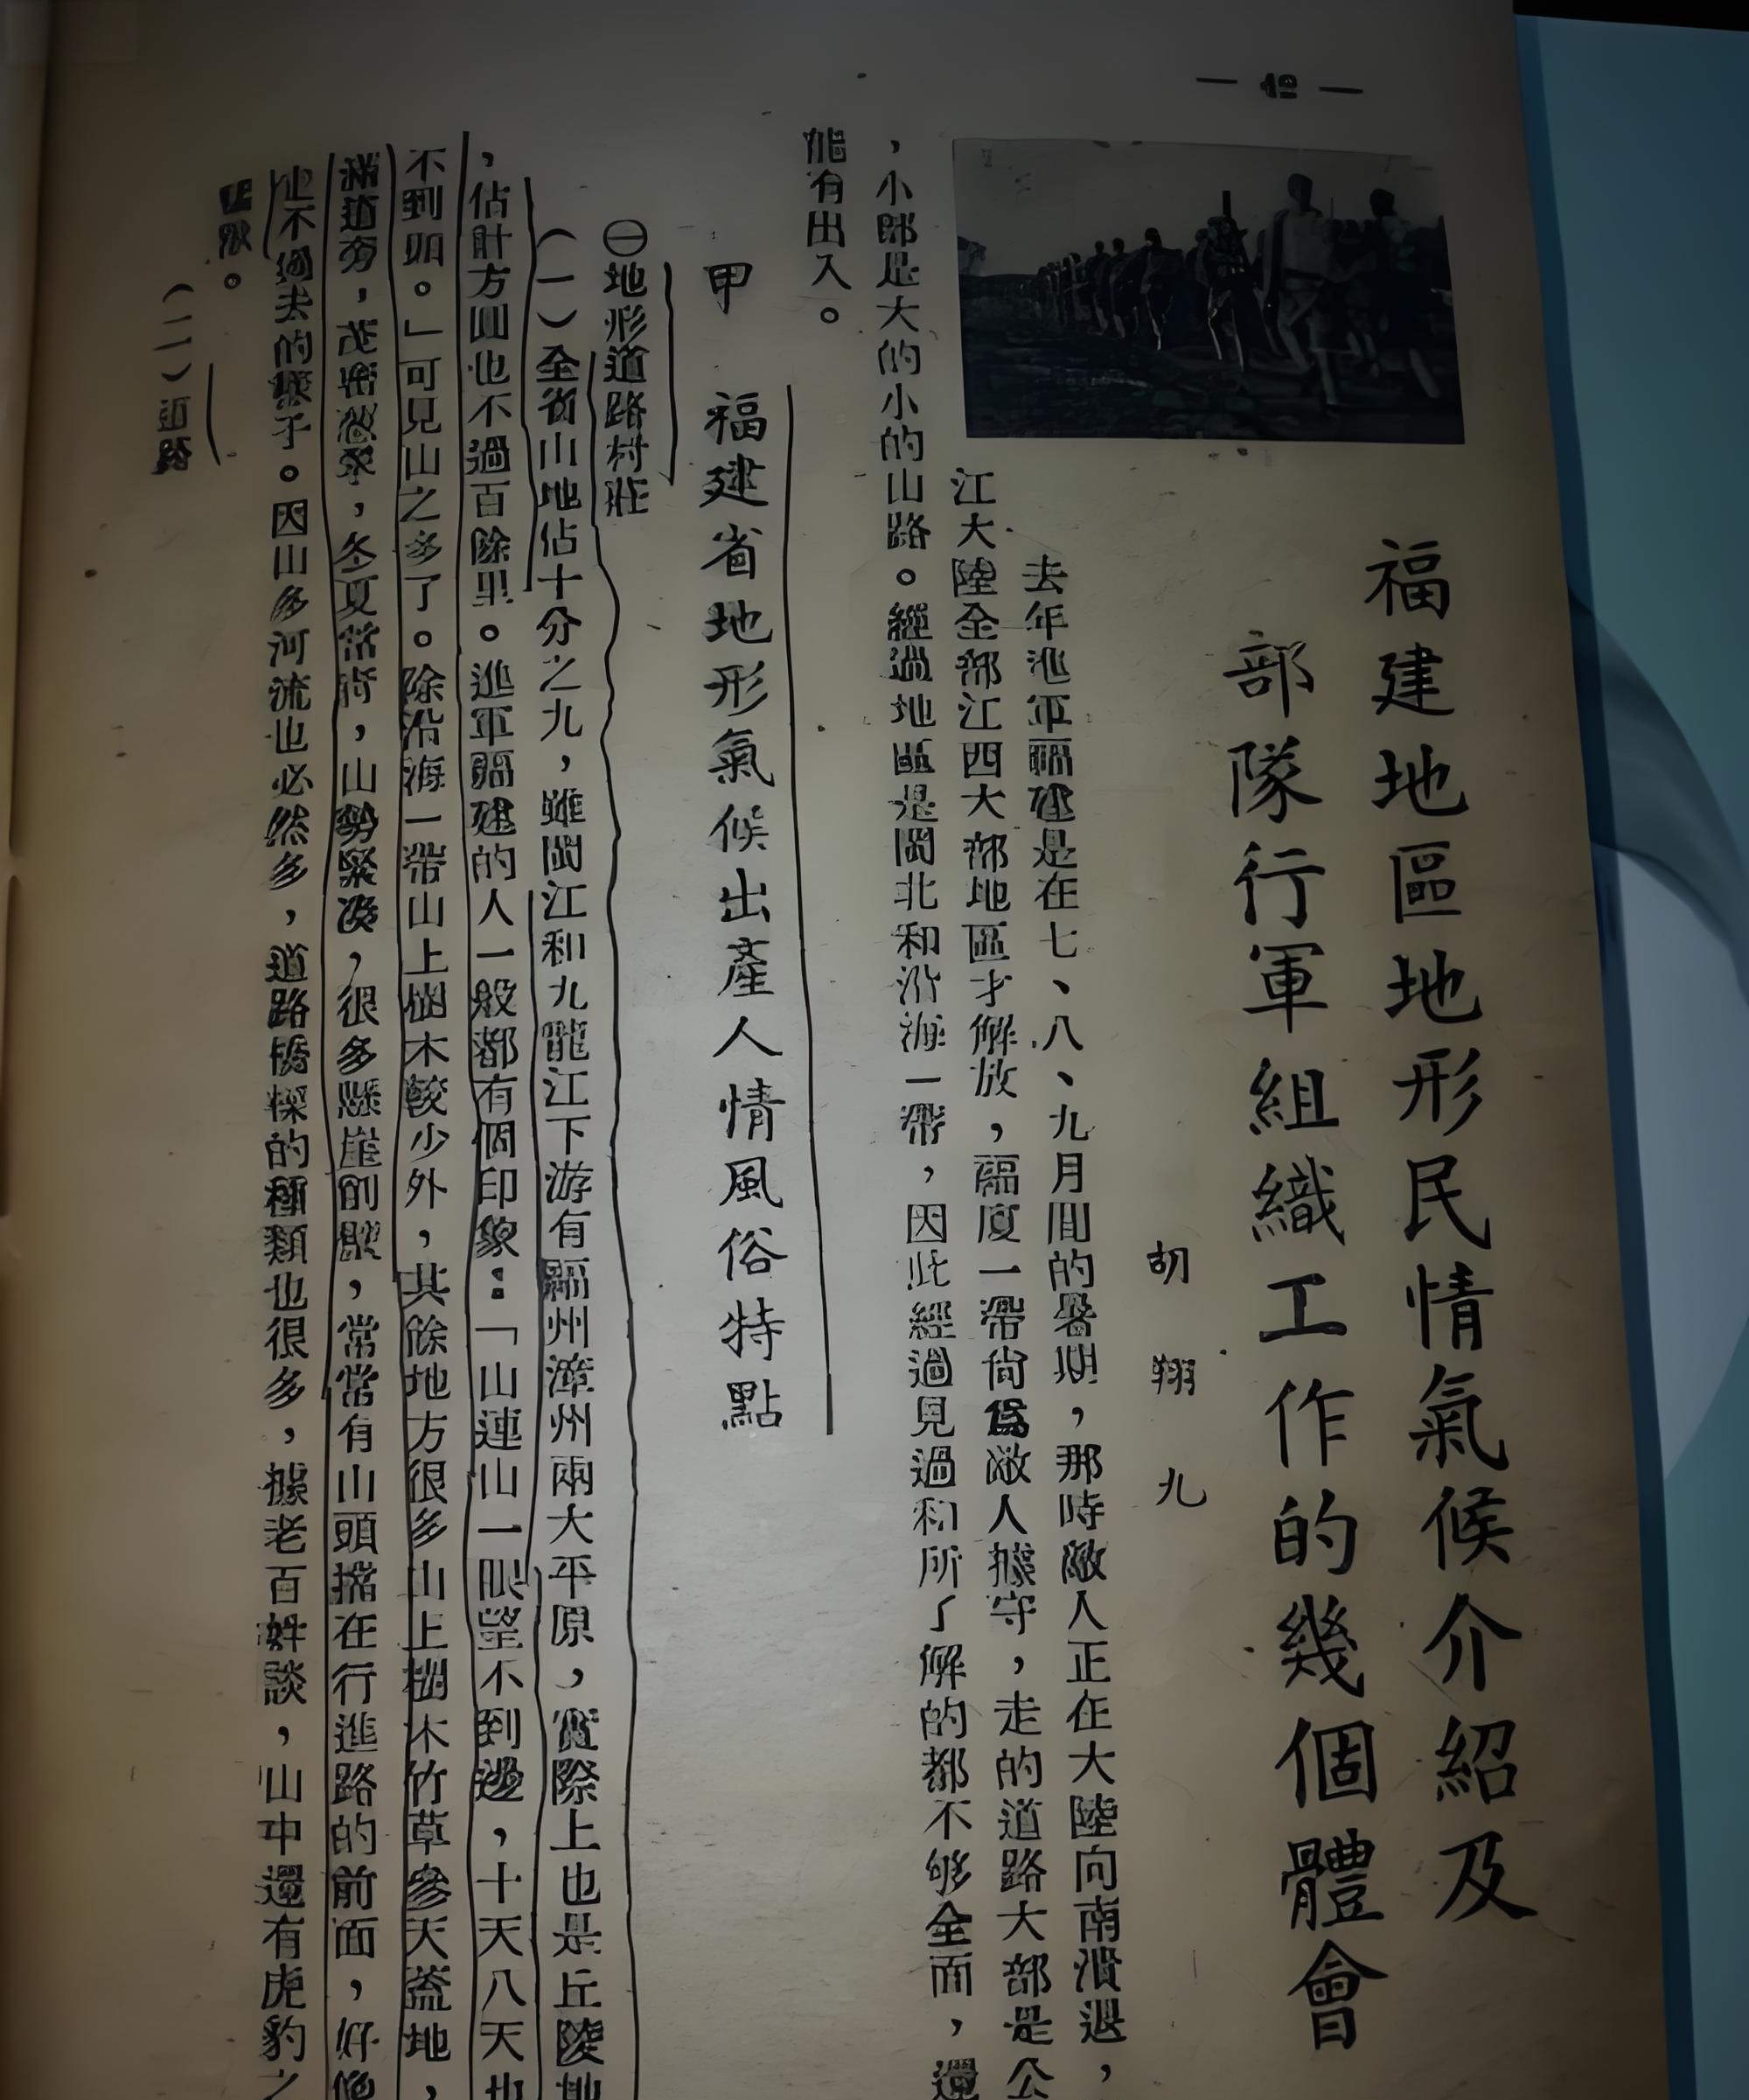 — 49 —
福建地區地形民情氣候介紹及
部隊行軍組織工作的幾個體會
胡翔九
去年進軍福建是在七、八、九月間的暑期，那時敵人正在大陸向南潰退，
江大陸全部江四大部地區才解放，福廈一帶尙爲敵人據守，走的道路大部是公
，小部是大的小的山路。經過地區是閩北和沿海一帶，因此經過見過和所了解的都不够全面，還
能有出入。
甲　福建省地形氣候出產人情風俗特點
㊀地形道路村莊
（一）全省山地佔十分之九，雖閩江和九龍江下游有福州漳州兩大平原，實際上也是丘陵地
，佔計方圓也不過百餘里。進軍福建的人一般都有個印象：「山連山一眼望不到邊，十天八天也
不到頭。」可見山之多了。除沿海一帶山上樹木較少外，其餘地方很多山上樹木竹草參天蓋地，
滿道旁，茂密，冬夏常靑，山勢緊湊，很多懸崖削壁，常常有山頭擋在行進路的前面，好像
也不過去的樣子。因山多河流也必然多，道路橋樑的種類也很多，據老百姓談，山中還有虎豹之
。
（二）道路